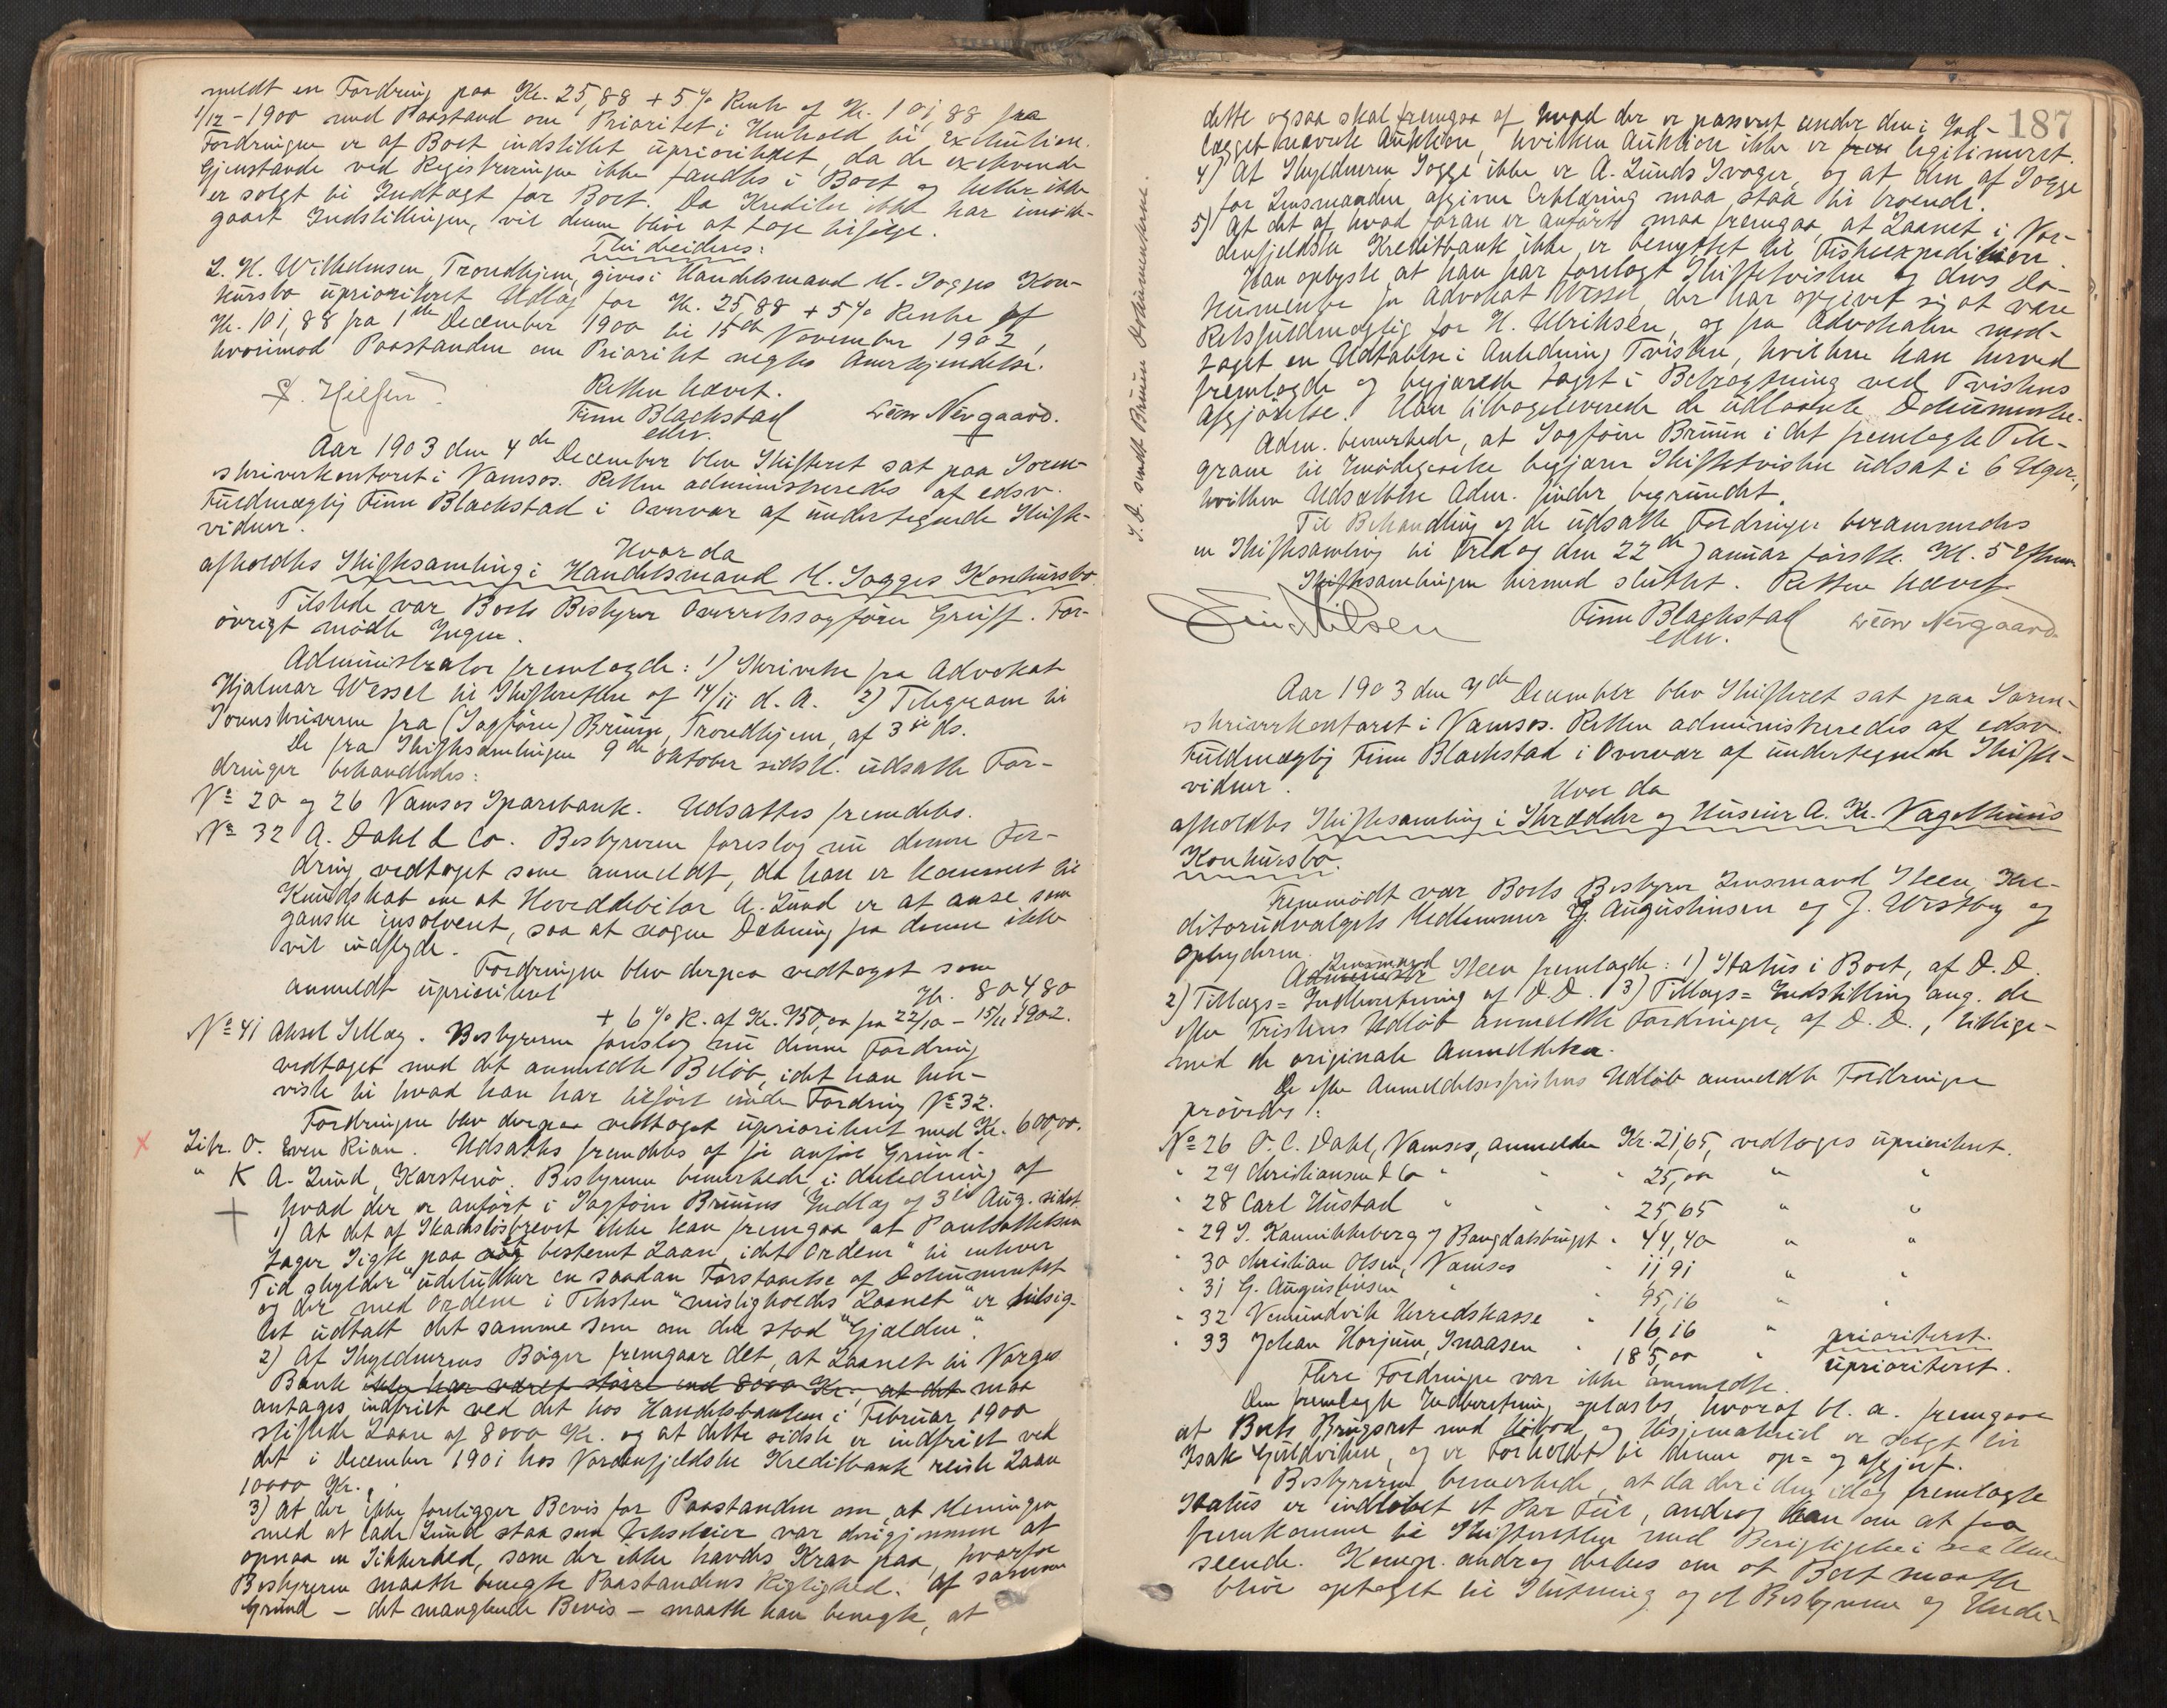 meldt en Fordring paa Kr. 25,88 + 5% Rente af Kr. 101,88 fra
1/12 - 1900 med Paastand om Prioritet i Henhold til Exekution.
Fordringen er af Boet indstillet uprioritet, da de exekverede
Gjenstande ved Registreringen ikke fandtes i Boet og heller ikke
er solgt til Indtægt for Boet. Da Kreditor ikke har imøde-
gaaet Indstillingen, vil denne blive at tage tilfølge.
Thi decideres:
L. H. Wilhelmsen, Trondhjem, gives i Handelsmand M. Sogges Kon-
kursbo uprioriteret Udlæg for Kr. 25,88 + 5% Rente af
Kr. 101,88 fra 1ste December 1900 til 15de November 1902,
hvorimod Paastanden om Prioritet negtes Anerkjendelse.
Retten hævet.
Finn Blackstad
edsv.
Aar 1903 den 4de December blev Skifteret sat paa Soren-
skriverkontoret i Namsos. Retten administreredes af edsv.
Fuldmægtig Finn Blackstad i Overvær af undertegnede Skifte-
vidner.
Hvor da
afholdtes Skiftesamling i Handelsmand M. Sogges Konkursbo.
Tilstede var Boets Bestyrer Overretssagfører Greiff. For-
øvrigt mødte Ingen.
Administrator fremlagde: 1) Skrivelse fra Advokat
Hjalmar Wessel til Skifteretten af 14/11 d. A. 2) Telegram til
Sorenskriveren fra (Sagfører) Bruun, Trondhjem, af 3die ds.
De fra Skiftesamlingen 9de Oktober sidstl. udsatte For-
dringer behandledes:
No 20 og 26 Namsos Sparebank. Udsattes fremdeles.
No 32 A. Dahl & Co. Bestyreren foreslog nu denne For-
dring vedtaget som anmeldt, da han er kommet til
Kundskab om at Hoveddebitor A. Lund er at anse som
ganske insolvent, saa at nogen Dækning fra denne ikke
vil indflyde.
Fordringen blev derpaa vedtaget som
anmeldt uprioriteret Kr. 804,80
+ 6% R. af Kr. 750,00 fra 22/10 - 15/11 1902.
No 41 Aksel Sellæg. Bestyreren foreslog nu denne Fordring
vedtaget med det anmeldte Beløb, idet han hen-
viste til hvad han har tilført under Fordring No 32.
Fordringen blev derpaa vedtaget uprioriteret med Kr. 600,00.
Litr. O. Even Rian. Udsattes fremdeles af før anført Grund.
" K A. Lund, Karstenø. Bestyreren bemerkede i Anledning af
hvad der er anført i Sagfører Bruuns Indlæg af 31te Aug. sidst.
1) At det af Skadesløsbrevet ikke kan fremgaa at Pantsættelsen
tager Sigte paa noget bestemt Laan, idet Ordene "til enhver
Tid skylder" udelukker en saadan Forstaaelse af Dokumentet
og der med Ordene i Teksten "misligholdes Laanet" er tilsig-
tet udtalt det samme som om der stod "Gjælden".
2) Af Skyldnerens Bøger fremgaar det, at Laanet til Norges
Bank ikke har været større end 8000 Kr., at det maa
antages indfriet ved det hos Handelsbanken i Februar 1900
stiftede Laan af 8000 Kr. og at dette sidste er indfriet ved
det i December 1901 hos Nordenfjeldske Kreditbank reiste Laan
10000 Kr.
3) At der ikke foreligger Bevis for Paastanden om, at Meningen
med at lade Lund staa som Vekseleier var derigjennem at
opnaa en Sikkerhed, som der ikke havdes Krav paa, hvorfor
Bestyreren maatte benegte Paastandens Rigtighed. Af samme
Grund - det manglende Bevis - maatte han benegte, at
187
dette ogsaa skal fremgaa af hvad der er passeret under den i Ind-
lægget nævnte Auktion, hvilken Auktion ikke er legitimeret.
4) At Skyldneren Sogge ikke er A. Lunds Svoger, og at den af Sogge
for Lensmanden afgivne Erklæring maa staa til troende.
5) At det af, hvad foran er anført maa fremgaa, at Laanet i Nor-
denfjeldske Kreditbank ikke er benyttet til Fiskeexpedition.
Han oplyste at han har forelagt Skiftetvisten og dens Do-
kumenter for Advokat Wessel, der har opgivet sig at være
Retsfuldmægtig for H. Ulriksen, og fra Advokaten mod-
taget en Udtalelse i Anledning Tvisten, hvilken han herved
fremlagde og begjærede taget i Betragtning ved Tvistens
Afgjørelse. Han tilbageleverede de udlaante Dokumenter.
Adm. bemerkede, at Sagfører Bruun i det fremlagte Tele-
gram til Imødegaaelse begjærer Skiftetvisten udsat i 6 Uger,
hvilken Udsættelse Adm. finder begrundet.
Til Behandling af de udsatte Fordringer berammedes
en Skiftesamling til Fredag den 22de Januar førstk. Kl. 5 Efterm.
Skiftesamlingen hermed sluttet. Retten hævet
Finn Blackstad
edsv.
S. D. sendt Bruun Dokumenterne.
Aar 1903 den 4de December blev Skifteret sat paa Soren-
skriverkontoret i Namsos. Retten administreredes af edsv.
Fuldmægtig Finn Blackstad i Overvær af undertegnede Skifte-
vidner.
Hvor da
afholdtes Skiftesamling i Skrædder og Huseier A. Kr. Vagelhuus
Konkursbo.
Fremmødt var Boets Bestyrer Lensmand Steen, Kre-
ditorudvalgets Medlemmer G. Augustinsen og J. Westby og
Opbyderen.
Lensmand Steen fremlagde: 1) Status i Boet, af D. D.
2) Tillægs-Indberetning af D. D. 3) Tillægs-Indstilling ang. de
efter Fristens Udløb anmeldte Fordringer, af D. D., tillige-
med de originale Anmeldelser.
De efter Anmeldelsesfristens Udløb anmeldte Fordringer
prøvedes:
No 26 O. C. Dahl, Namsos, anmelder Kr. 21,65, vedtoges uprioriteret.
" 27 Christiansen & Co " " " 25,00 " "
" 28 Carl Hustad " " " 25,65 " "
" 29 S. Kannikkeberg og Bangdalsbruget " 44,40 " "
" 30 Christian Olsen, Namsos " 11,91 " "
" 31 G. Augustinsen " " 95,16 " "
" 32 Vemundvik Herredskasse " 16,16 " prioriteret.
" 33 Johan Horjem, Snaasen " 185,00 " uprioriteret.
Flere Fordringer var ikke anmeldte.
Den fremlagte Indberetning oplæstes, hvoraf bl. a. fremgaar
at Boets Brugsret med er solgt til
Isak Gulkviken, og er Forholdet til denne op- og afgjort.
Bestyreren bemerkede, at da der i den idag fremlagte
Status er indløbet et Par Feil, androg han om at faa
fremkomme til Skifteretten med Berigtigelse i saa Hen-
seende. Komp. androg derhos om at Boet maatte
blive optaget til Slutning og at Bestyreren og Kredi-